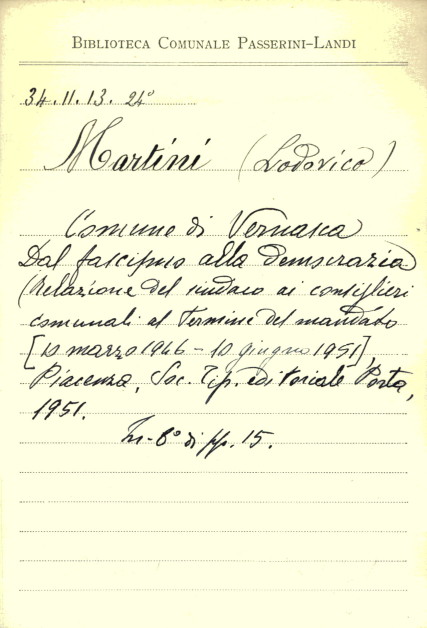 BIBLIOTECA COMUNALE PASSERINI-LANDI
34.11.13. 24°
Martini (Lodovico)
Comune di Vernasca
Dal fascismo alla democrazia
(Relazione del sindaco ai consiglieri
comunali al termine del mandato
[10 marzo 1946 - 10 giugno 1951],
Piacenza, Soc. Tip. editoriale Porta,
1951.
In-8° di pp. 15.